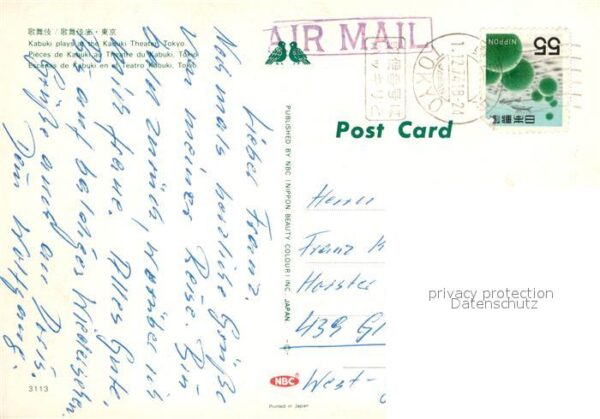 歌舞伎 / 歌舞伎座・東京
Kabuki plays at the Kabuki Theater, Tokyo
Pièces de Kabuki au Théatre du Kabuki, Tokyo
Escenas de Kabuki en el Teatro Kabuki, Tokyo
AIR MAIL
TOKYO
1.12.74.18-24
55
NIPPON
日本郵便
Post Card
PUBLISHED BY NBC (NIPPON BEAUTY COLOUR) INC. JAPAN
Lieber Franz,
Nochmals herzliche Grüße
von meiner Reise. Bin
bald zurück, worüber ich
mich freue. Alles Gute,
auf baldiges Wiedersehen.
Grüße auch an Doris.
Dein Wolfgang.
Herrn
Franz
439
West-
privacy protection
Datenschutz
3113
NBC
Printed in Japan